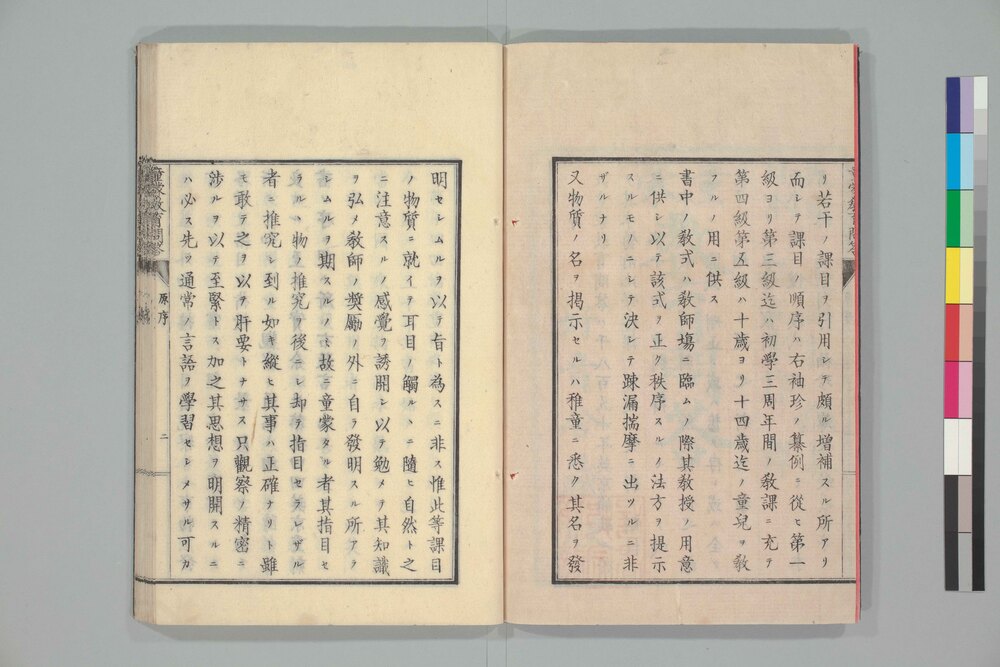 リ若干ノ課目ヲ引用シテ頗ル増補スル所アリ
而シテ課目ノ順序ハ右袖珍ノ纂例ニ從ヒ第一
級ヨリ第三級迄ハ初學三周年間ノ敎課ニ充テ
第四級第五級ハ十歳ヨリ十四歳迄ノ童兒ヲ敎
フルノ用ニ供ス
書中ノ敎式ハ敎師塲ニ臨ムノ際其敎授ノ用意
ニ供シ以テ該式ヲ正ク秩序スルノ法方ヲ提示
スルモノニシテ決シテ踈漏揣摩ニ出ツルニ非
ザルナリ
又物質ノ名ヲ掲示セルハ稚童ニ悉ク其名ヲ發
明セシムルヲ以テ旨ト為スニ非ス惟此等課目
ノ物質ニ就イテ耳目ノ觸ルヽニ隨ヒ自然ト之
ニ注意スルノ感覺ヲ誘開シ以テ勉メテ其知識
ヲ弘メ敎師ノ奬勵ノ外ニ自ラ發明スル所アラ
シムルヲ期スルノミ故ニ童蒙タル者其指目セ
ラルヽ物ノ推究ヲ後ニシ却テ指目セラレザル
者ニ推究シ到ル如キ縱ヒ其事ハ正確ナリト雖
モ敢テ之ヲ以テ肝要トナサス只觀察ノ精密ニ
渉ルヲ以テ至緊トス加之其思想ヲ明開スルニ
ハ必ス先ツ通常ノ言語ヲ學習セシメサル可カ
原序
二